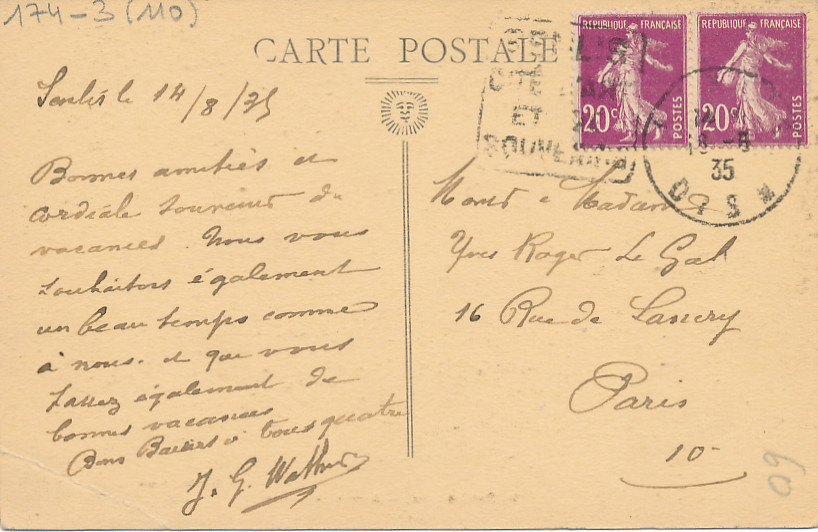 174-3 (110)
CARTE POSTALE
RÉPUBLIQUE FRANÇAISE
20c
POSTES
RÉPUBLIQUE FRANÇAISE
20c
POSTES
ET
SOUVENIRS
35
Senlis le 14/8/35
Bonnes amitiés et
cordiale souvenir de
vacances. Nous vous
souhaitons également
un beau temps comme
à nous. et que vous
passez également de
bonnes vacances
Bons Baisers à tous quatre
J. G.
Mons e Madame
Yves Roger Le Gal
16 Rue de
Paris
10
60